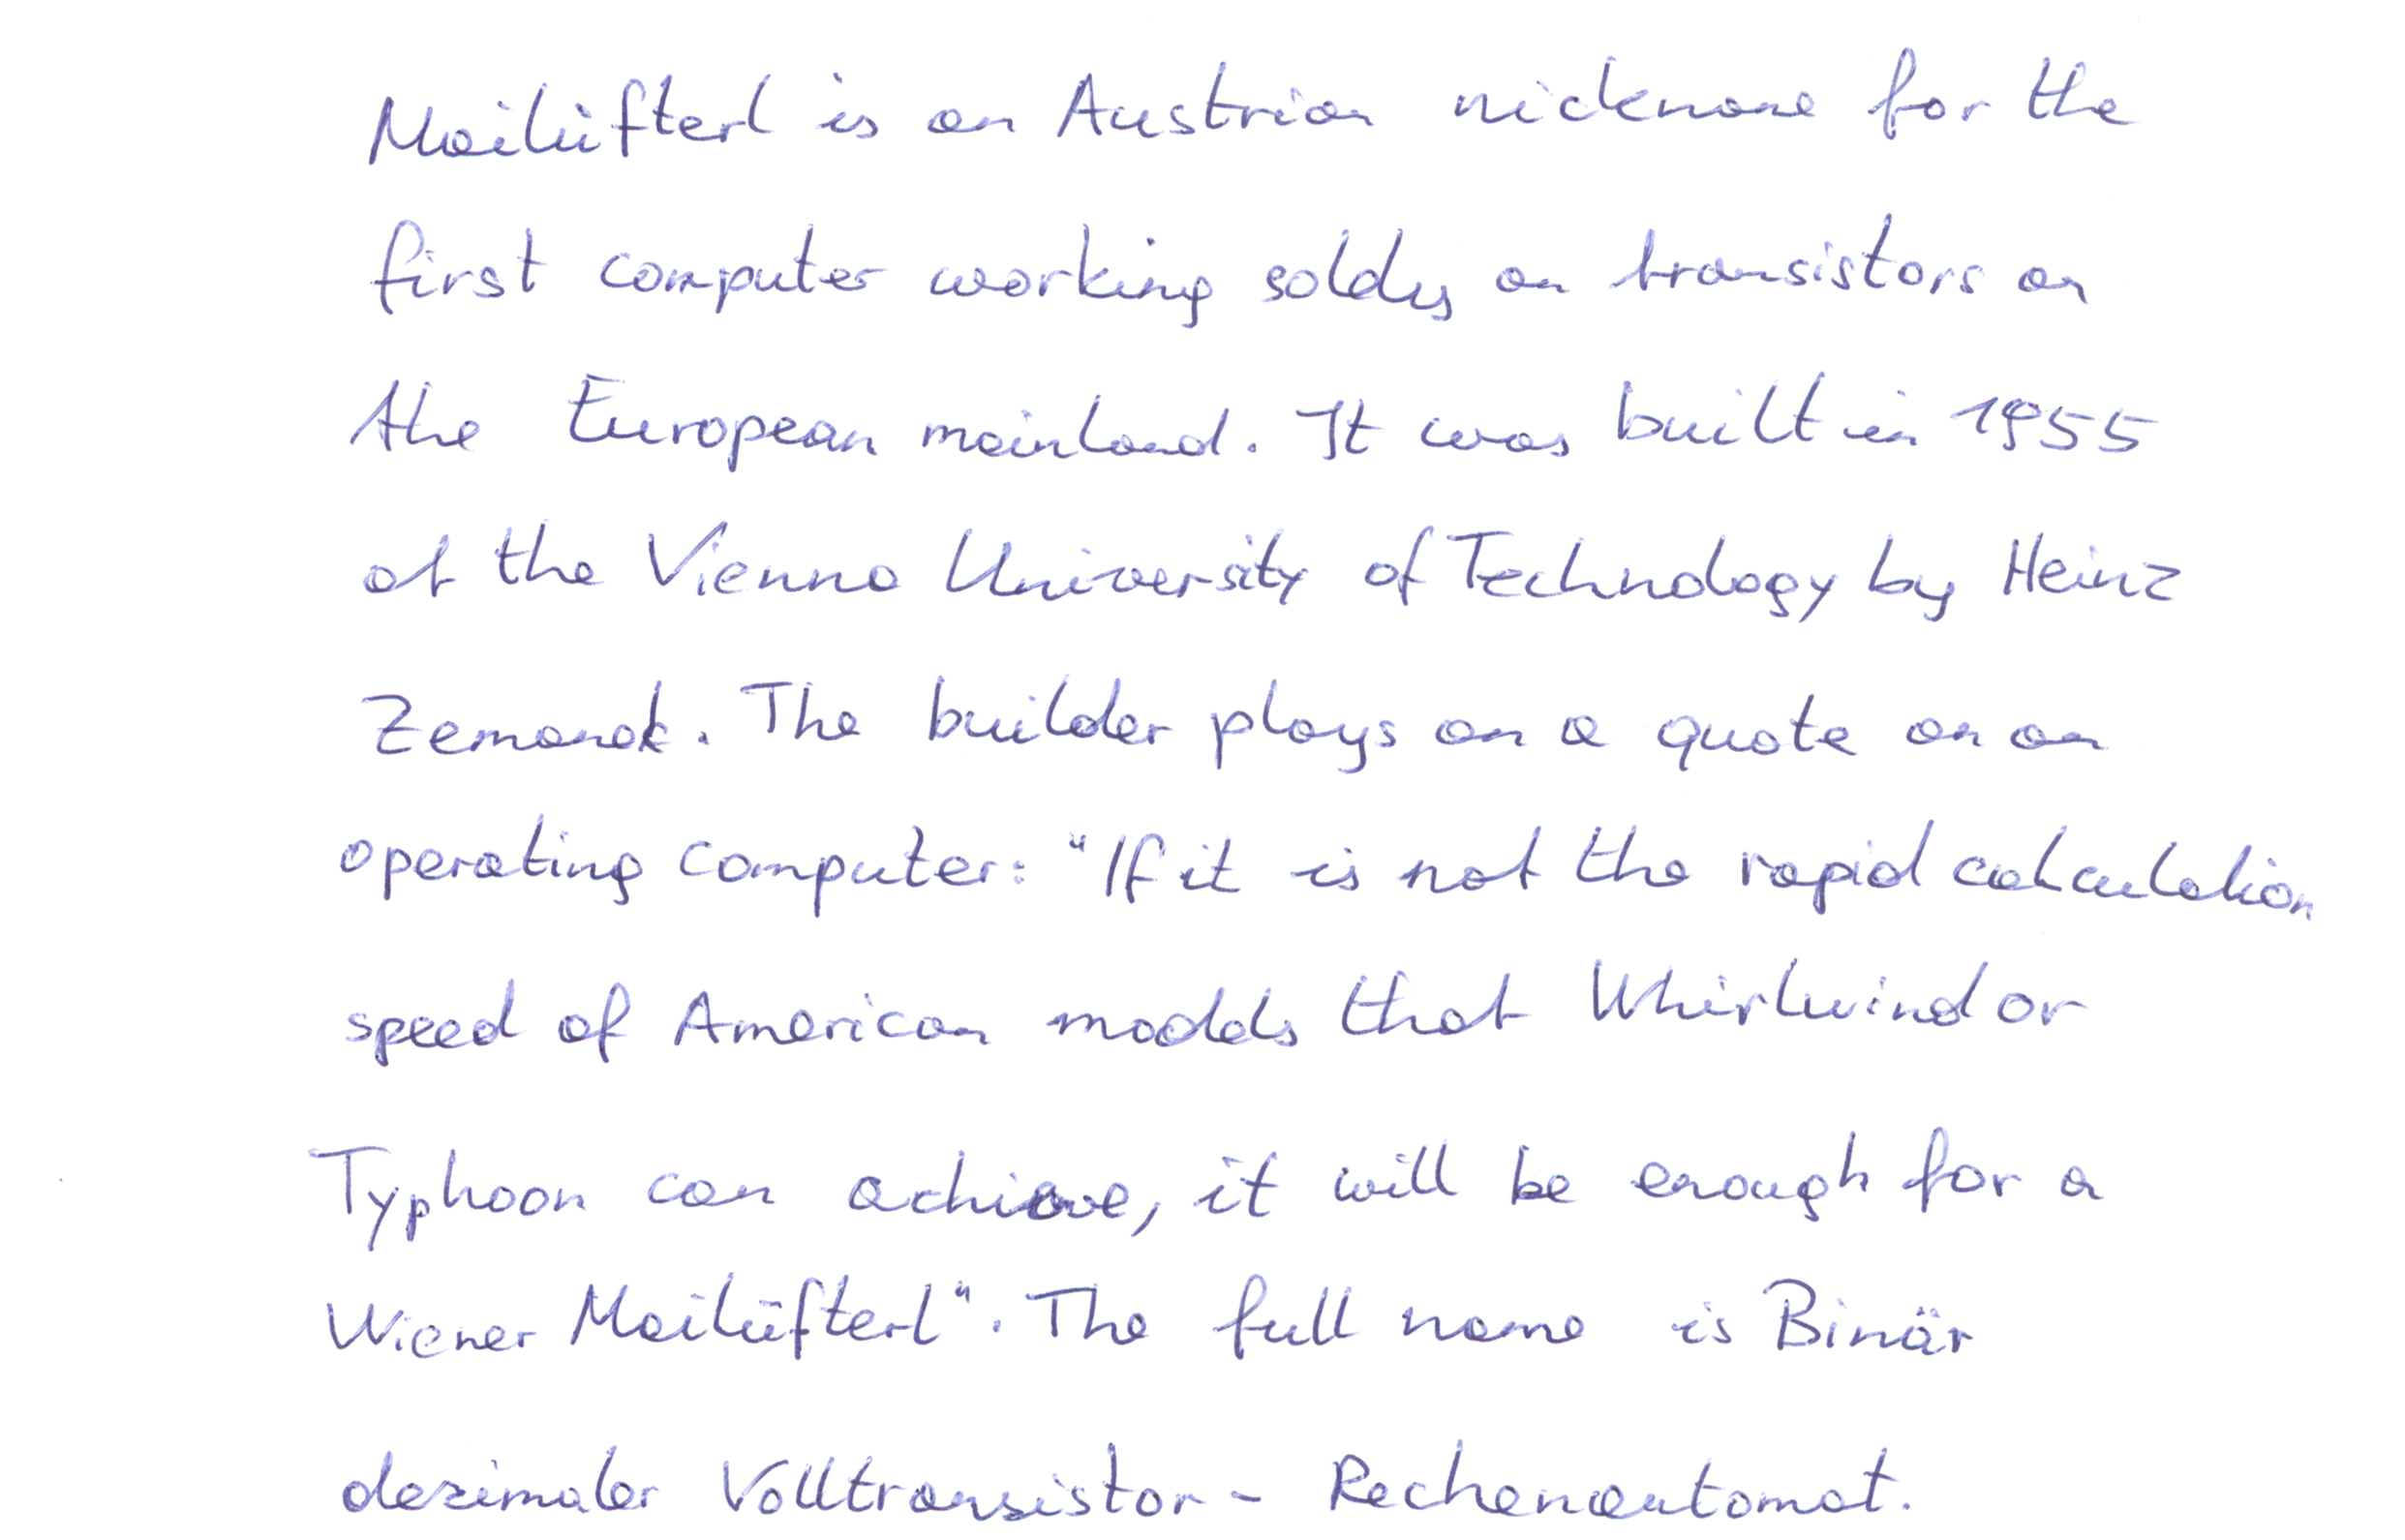 Mailüfterl is an Austrian nickname for the
first computer working solely on transistors on
the European mainland. It was built in 1955
at the Vienna University of Technology by Heinz
Zemanek. The builder plays on a quote on an
operating computer: "If it is not the rapid calculation
speed of American models that Whirlwind or
Typhoon can achieve, it will be enough for a
Wiener Mailüfterl". The full name is Binär
dezimaler Volltransistor-Rechenautomat.